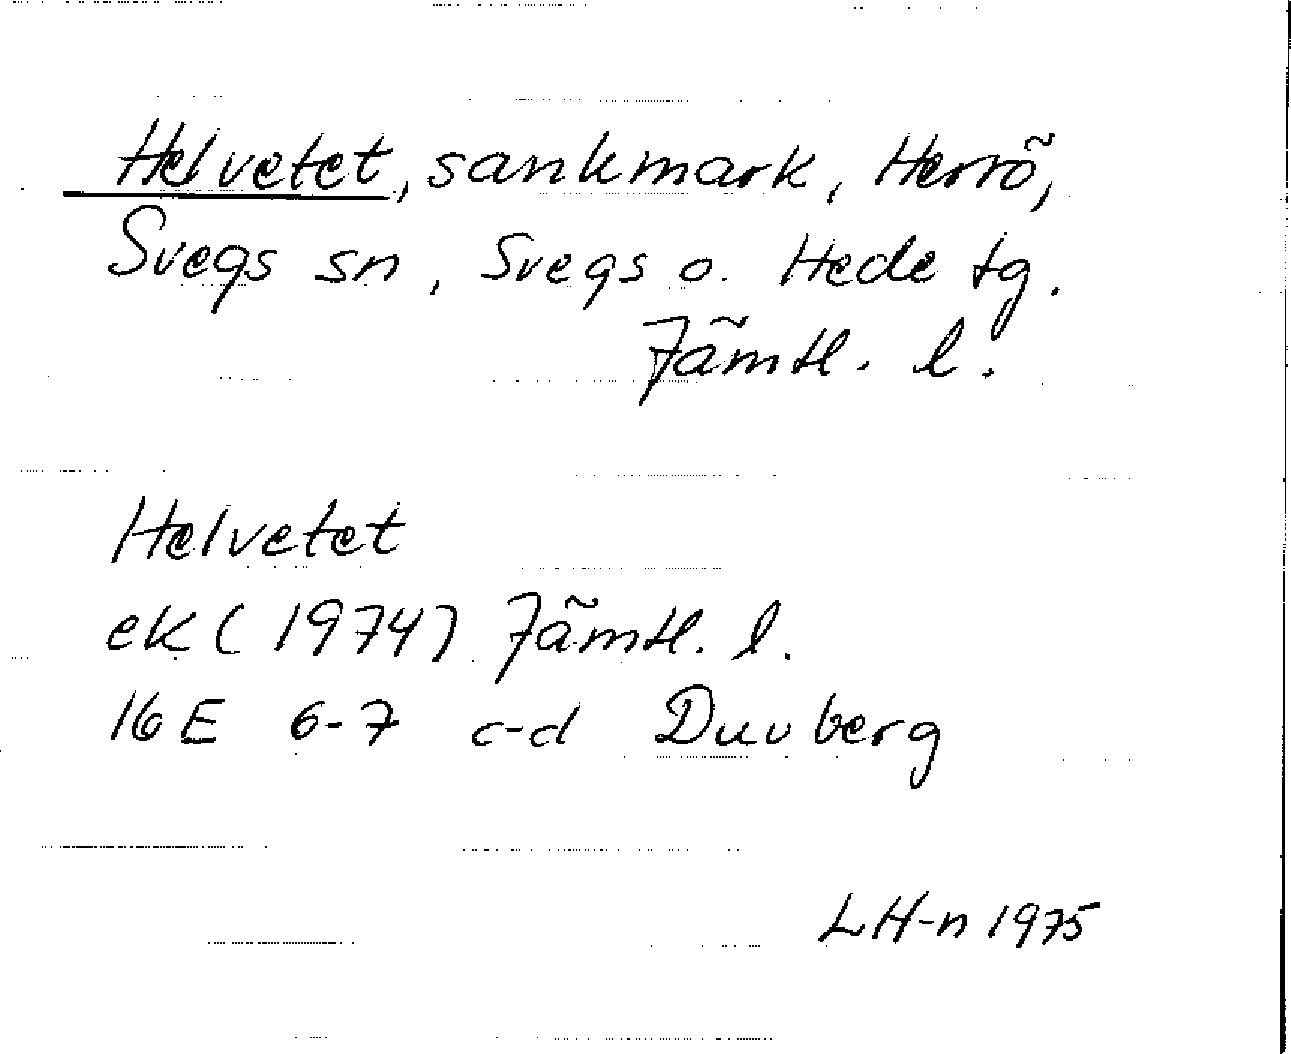 Helvetet, sankmark, Herrö,
Svegs sn, Svegs o. Hede tg.
Jämtl. l.
Helvetet
ek (1974) Jämtl. l.
16E 6-7 c-d Duvberg
LH-n 1975